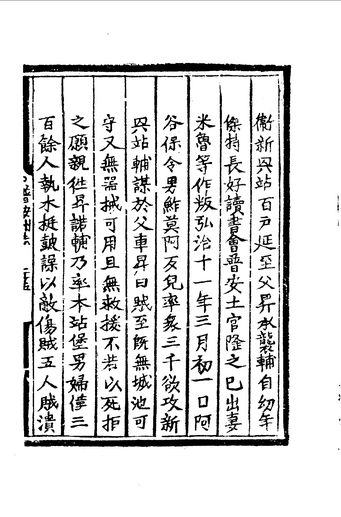 衞新興站百戸延至父昇承襲輔自幼年
倐持長好讀書會普安土官隆之巳出妻
米魯等作叛弘治十一年三月初一日阿
谷保令男鮓莫阿歹兒率衆三千欲攻新
興站輔謀於父車昇曰賊至旣無城池可
守又無器械可用且無救援不若以死拒
之願親徃昇諾輔乃率本站堡男婦僅三
百餘人執木挺鼓譟以敵傷賊五人賊潰